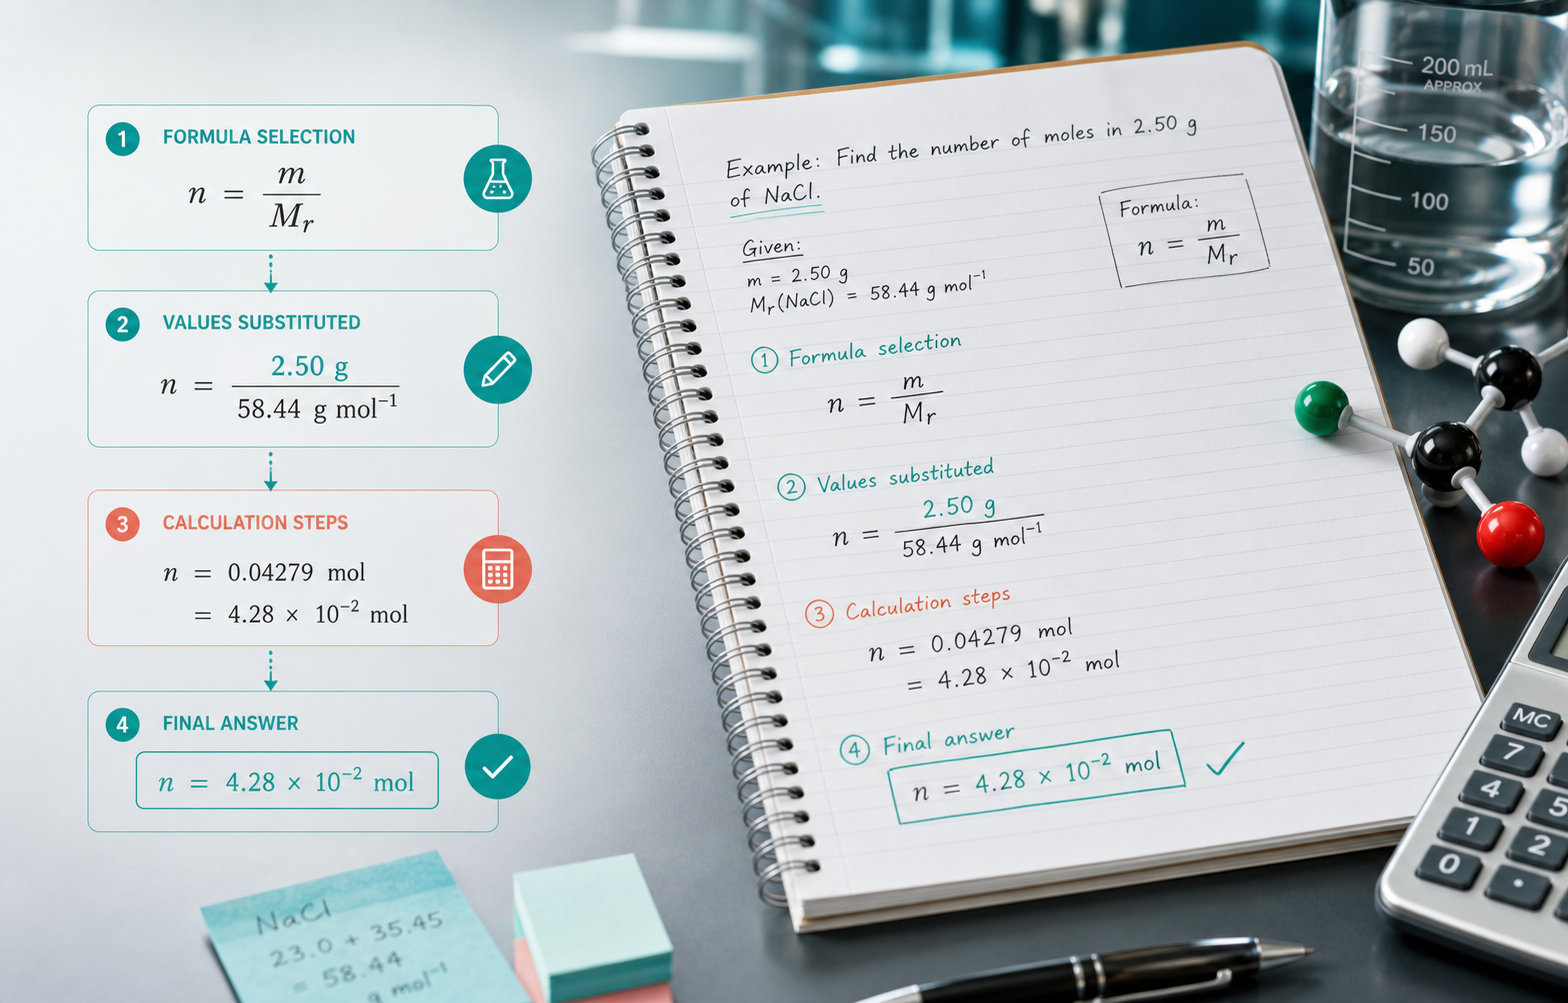 1 FORMULA SELECTION
n = m / Mr
2 VALUES SUBSTITUTED
n = 2.50 g / 58.44 g mol⁻¹
3 CALCULATION STEPS
n = 0.04279 mol
= 4.28 × 10⁻² mol
4 FINAL ANSWER
n = 4.28 × 10⁻² mol
Example: Find the number of moles in 2.50 g
of NaCl.
Formula:
n = m / Mr
Given:
m = 2.50 g
Mr(NaCl) = 58.44 g mol⁻¹
① Formula selection
n = m / Mr
② Values substituted
n = 2.50 g / 58.44 g mol⁻¹
③ Calculation steps
n = 0.04279 mol
= 4.28 × 10⁻² mol
④ Final answer
n = 4.28 × 10⁻² mol ✓
NaCl
23.0 + 35.45
= 58.44
g mol⁻¹
200 mL
APPROX
150
100
50
MC
7
4 5
1 2
0 ·